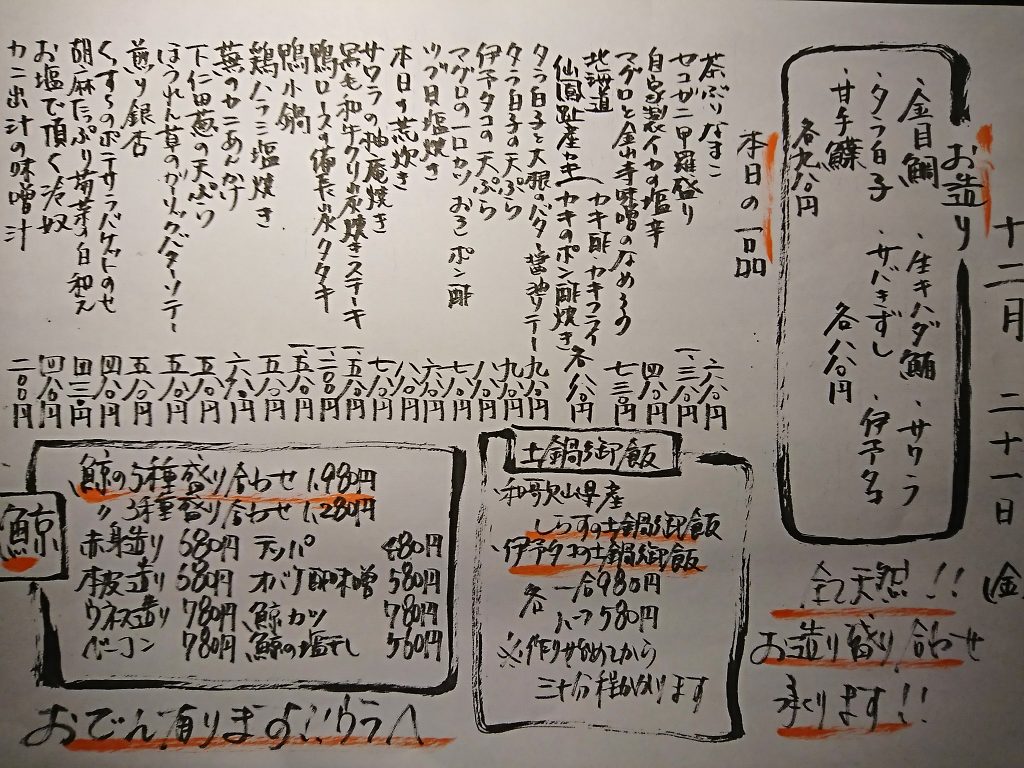 十二月 二十一日 (金)
お造り
・金目鯛 ・生キハダ鮪 ・サワラ
・タラ白子 ・サバきずし ・伊予タコ
・甘手鰈 各八八〇円
各九八〇円
全て天然!!
お造り盛り合わせ
承ります!!
本日の一品
茶ぶりなまこ 六八〇円
セコガニ甲羅盛り 一、三八〇円
自家製イカの塩辛 四八〇円
マグロと金山寺味噌のなめろう 七三〇円
北海道
仙鳳趾産カキ カキ酢・カキフライ
カキのポン酢焼き 各八八〇円
タラ白子と大根のバター醤油ソテー 九八〇円
タラ白子の天ぷら 九八〇円
伊予タコの天ぷら 八八〇円
マグロの一口カツおろしポン酢 七八〇円
ツブ貝塩焼き 六八〇円
本日の荒炊き 八八〇円
サワラの柚庵焼き 七八〇円
黒毛和牛クリ炭焼きステーキ 一、五八〇円
鴨ロースの備長炭タタキ 一、二〇〇円
鴨小鍋 一、五八〇円
鶏ハラミ塩焼き 五八〇円
蕪のカニあんかけ 六八〇円
下仁田葱の天ぷら 五八〇円
ほうれん草のガーリックバターソテー 五八〇円
煎り銀杏 五八〇円
くすらのポテサラバゲットのせ 四八〇円
胡麻たっぷり菊菜の白和え 四三〇円
お塩で頂く冷奴 四八〇円
カニ出汁の味噌汁 二〇〇円
土鍋御飯
・和歌山県産
しらすの土鍋御飯
・伊予タコの土鍋御飯
各 一合980円
ハーフ580円
※作りはじめてから
三十分程かかります
鯨
鯨の5種盛り合わせ 1,980円
〃 3種盛り合わせ 1,280円
赤身造り 680円 テッパ 480円
本皮造り 580円 オバケ酢味噌 580円
ウネス造り 780円 鯨カツ 780円
ベーコン 780円 鯨の塩干し 560円
おでん有ります!!ウラへ